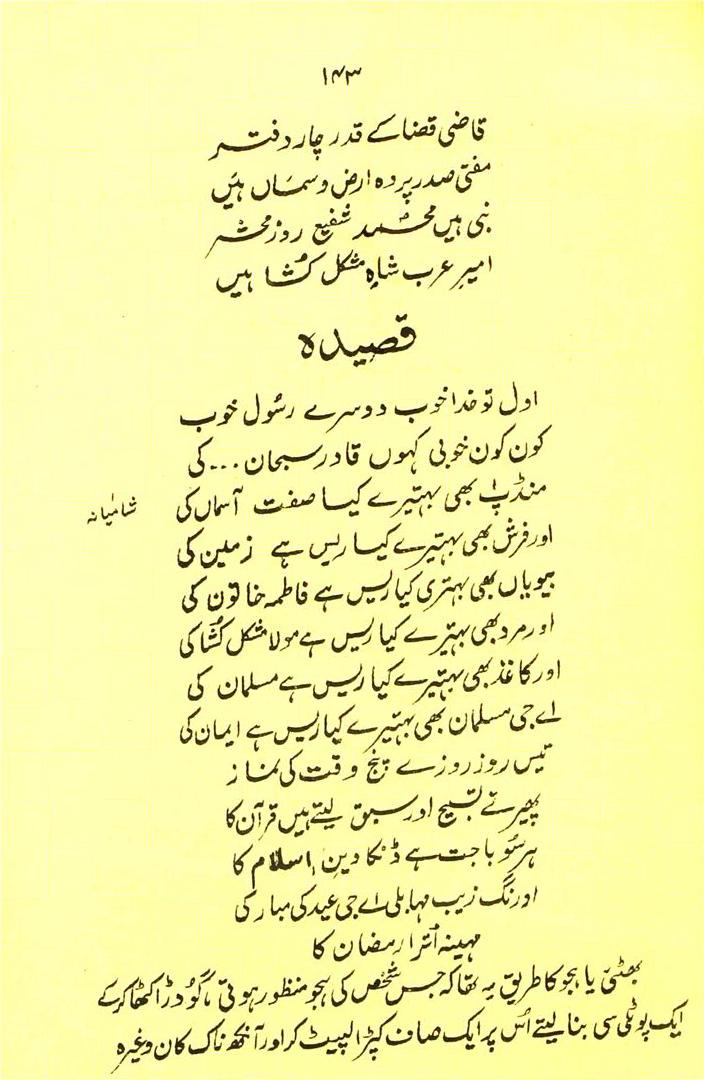 ۱۴۳
قاضی قضا کے قدر چار دفتر
مفتی صدر پردہ ارض و سماں ہیں
نبی ہیں محمد شفیع روز محشر
امیرِ عرب شاہِ مشکل کُشا ہیں
قصیدہ
اول تو خدا خوب دوسرے رسُول خوب
کون کون خوبی کہوں قادر سبحان ... کی
منڈپ بھی بہتیرے کیا صفت آسماں کی
شامیانہ
اور فرش بھی بہتیرے کیا ریس ہے زمین کی
بیویاں بھی بہتری کیا ریس ہے فاطمہ خاتون کی
اور مرد بھی بہتیرے کیا ریس ہے مولا مشکل کُشا کی
اور کاغذ بھی بہتیرے کیا ریس ہے مسلمان کی
اے جی مسلمان بھی بہتیرے کیا ریس ہے ایمان کی
تیس روز روزے پنج وقت کی نماز
پھیرتے تسبیح اور سبق لیتے ہیں قرآن کا
ہر سُو باجت ہے ڈنکا دین اسلام کا
اورنگ زیب مہابلی اے جی عید کی مبارکی
مہینہ اُترا رمضان کا
بھٹئ یا ہجو کا طریق یہ تھا کہ جس شخص کی ہجو منظور ہوتی، گُودڑ اکٹھا کرکے
ایک پوٹلی سی بنا لیتے اُس پر ایک صاف کپڑا لپیٹ کر اور آنکھ ناک کان وغیرہ